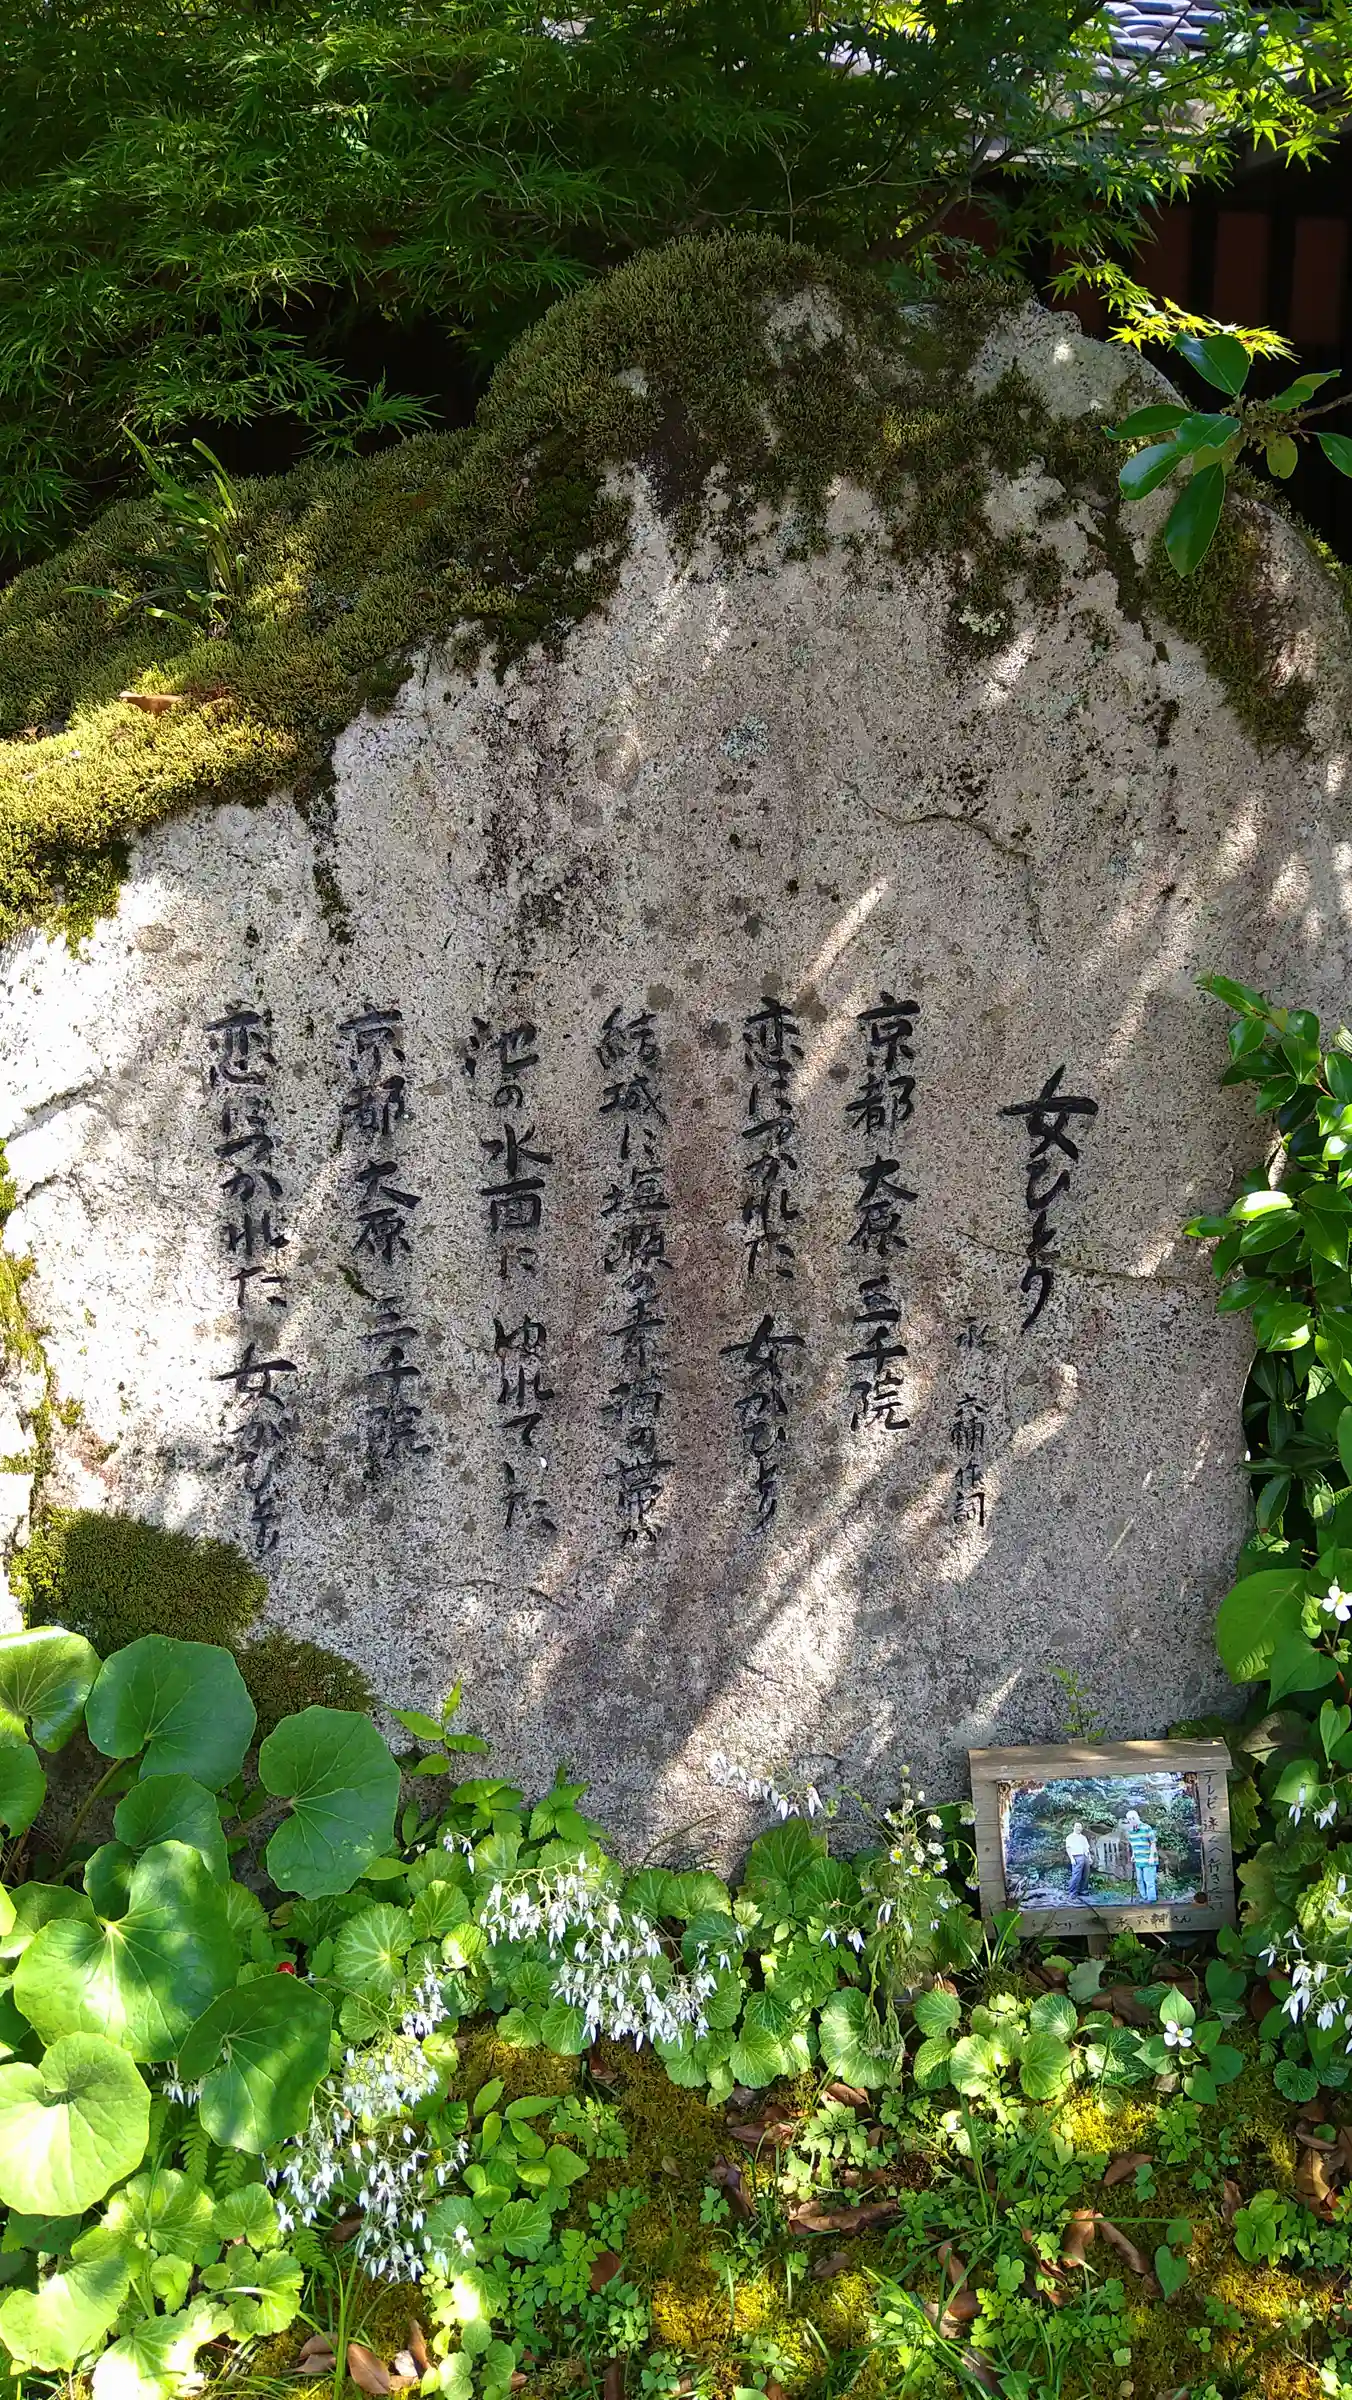 女ひとり
永 六輔 作詞
京都 大原 三千院
恋につかれた 女がひとり
結城に塩瀬の素描の帯が
池の水面に ゆれてた
京都 大原 三千院
恋につかれた 女がひとり
テレビ 遠くへ行きたい
永六輔さん